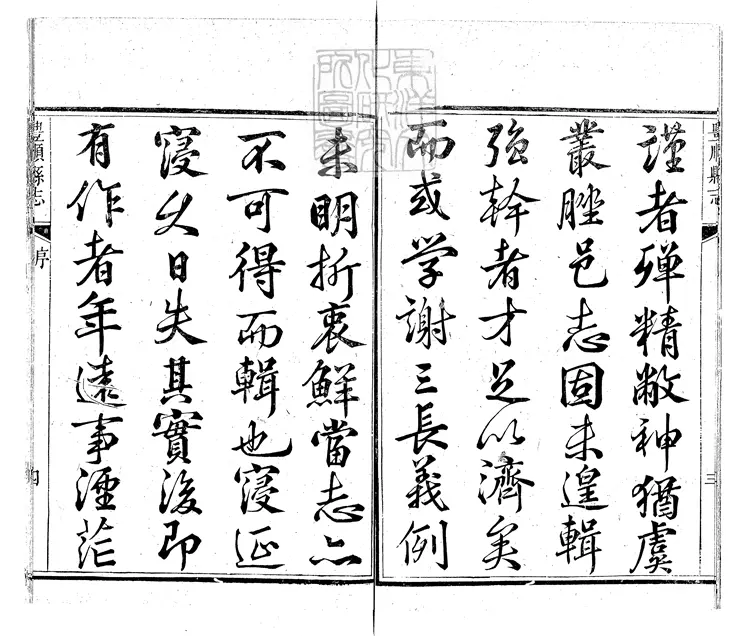 豐順縣志
三
謹者殫精敝神猶虞
叢脞邑志固未遑輯
強幹者才足以濟矣
而或学謝三長義例
未明折衷鮮當志亦
不可得而輯也寖延
寖久日失其實後即
有作者年遠事湮茫
豐順縣志
序
四